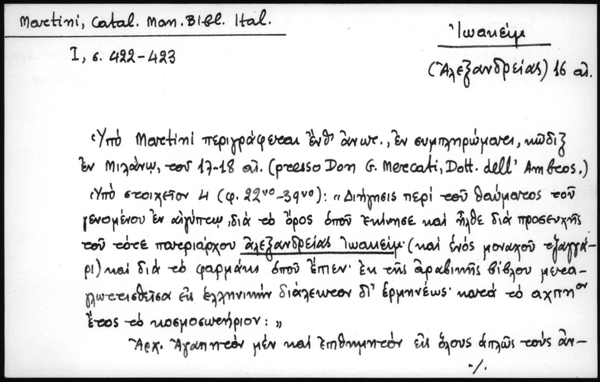 Martini, Catal. Man. Bibl. Ital.
I, σ. 422-423
Ἰωακείμ
(Ἀλεξανδρείας) 16 αἰ.
Ὑπό Martini περιγράφεται ἔνθ' ἀνωτ., ἐν συμπληρώματι, κῶδιξ
ἐν Μιλάνῳ, τοῦ 17-18 αἰ. (presso Don G. Mercati, Dott. dell' Ambros.)
Ὑπό στοιχεῖον 4 (φ. 22νο-39νο): "Διήγησις περί τοῦ θαύματος τοῦ
γενομένου ἐν αἰγύπτῳ, διά τό ὄρος ὁποῦ ἐκίνησε καί ἦλθε διά προσευχῆς
τοῦ τότε πατριάρχου ἀλεξανδρείας Ἰωακείμ (καί ἑνός μοναχοῦ τζαγγά-
ρι) καί διά τό φαρμάκι ὁποῦ ἔπιεν· ἐκ τῆς ἀραβικῆς βίβλου μετα-
γλωττισθεῖσα εἰς ἑλληνικήν διάλεκτον δι' ἑρμηνέως· κατά τό αχπηον
ἔτος τό κοσμοσωτήριον:"
Ἀρχ. Ἀγαπητόν μέν καί ἐπιθημητόν εἰς ὅλους ἁπλῶς τούς ἀν-
·/.